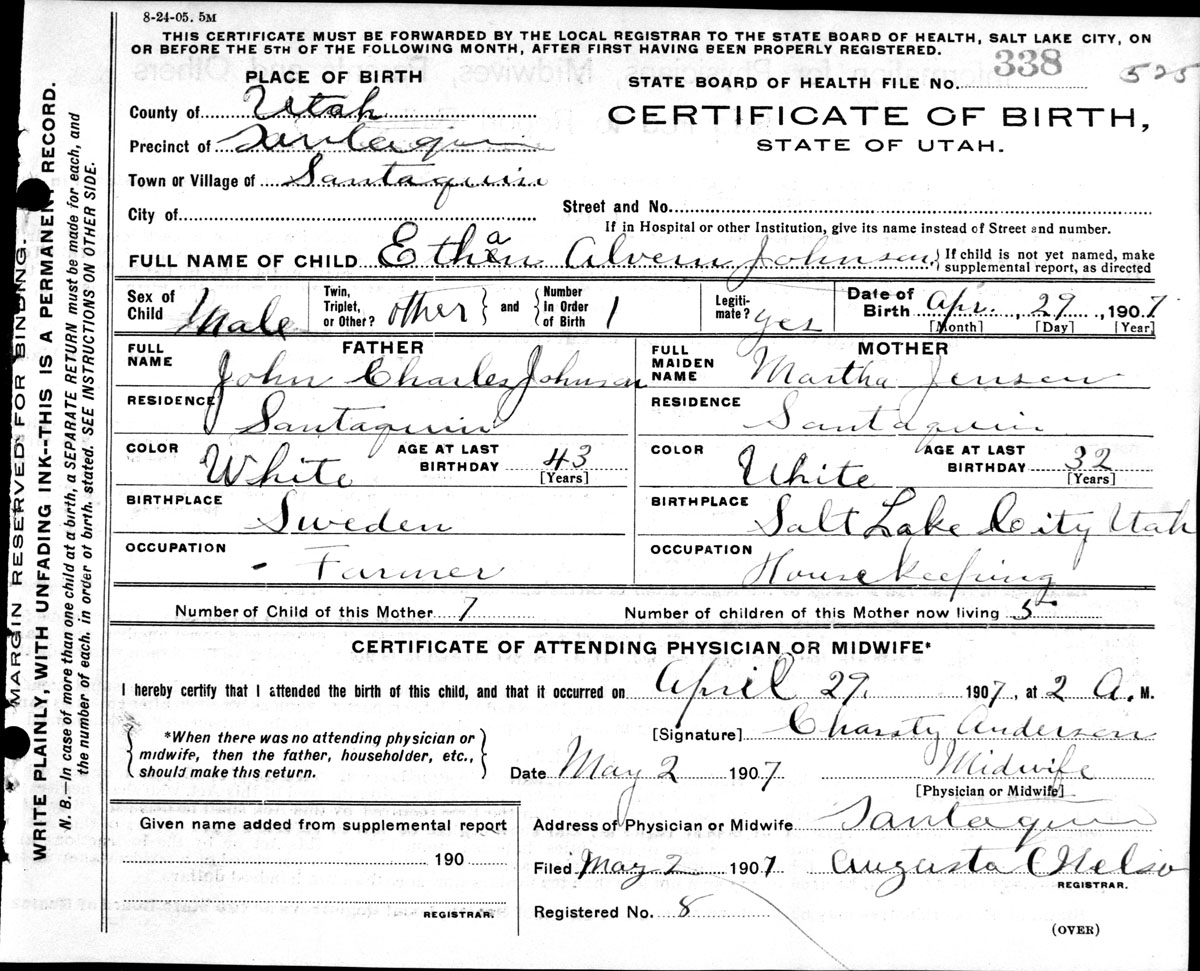 8-24-05. 5M
THIS CERTIFICATE MUST BE FORWARDED BY THE LOCAL REGISTRAR TO THE STATE BOARD OF HEALTH, SALT LAKE CITY, ON
OR BEFORE THE 5TH OF THE FOLLOWING MONTH, AFTER FIRST HAVING BEEN PROPERLY REGISTERED.
PLACE OF BIRTH
STATE BOARD OF HEALTH FILE No. 338 525
County of Utah
CERTIFICATE OF BIRTH,
STATE OF UTAH.
Precinct of Santaquin
Town or Village of Santaquin
City of
Street and No.
If in Hospital or other Institution, give its name instead of Street and number.
FULL NAME OF CHILD Ethan Alvern Johnson } If child is not yet named, make supplemental report, as directed
Sex of Child Male
Twin, Triplet, or Other? other } and { Number In Order of Birth 1
Legitimate? yes
Date of Birth Apr. 29, 1907
[Month] [Day] [Year]
FATHER
FULL NAME John Charles Johnson
RESIDENCE Santaquin
COLOR White AGE AT LAST BIRTHDAY 43 [Years]
BIRTHPLACE Sweden
OCCUPATION - Farmer
MOTHER
FULL MAIDEN NAME Martha Jensen
RESIDENCE Santaquin
COLOR White AGE AT LAST BIRTHDAY 32 [Years]
BIRTHPLACE Salt Lake City Utah
OCCUPATION Housekeeping
Number of Child of this Mother 7 Number of children of this Mother now living 5
CERTIFICATE OF ATTENDING PHYSICIAN OR MIDWIFE*
I hereby certify that I attended the birth of this child, and that it occurred on April 29, 1907, at 2 A. M.
*When there was no attending physician or
midwife, then the father, householder, etc.,
should make this return.
[Signature] Chassty Anderson
Date May 2 1907 Midwife
[Physician or Midwife]
Given name added from supplemental report
190
REGISTRAR.
Address of Physician or Midwife Santaquin
Filed May 2 1907 Augusta Nelso
REGISTRAR.
Registered No. 8
(OVER)
MARGIN RESERVED FOR BINDING.
WRITE PLAINLY, WITH UNFADING INK--THIS IS A PERMANENT RECORD.
N. B.—In case of more than one child at a birth, a SEPARATE RETURN must be made for each, and
the number of each, in order of birth, stated. SEE INSTRUCTIONS ON OTHER SIDE.